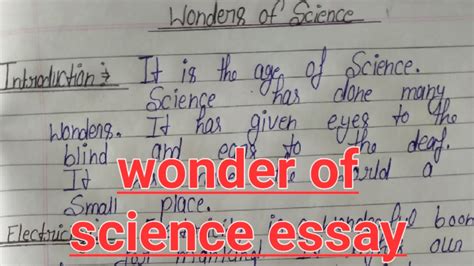 Wonders of Science
Introduction :- It is the age of Science.
Science has done many
Wonders. It has given eyes to the
blind and ears to the deaf.
It world a
Small place.
wonder of
science essay
Electric is a wonderful boon
our